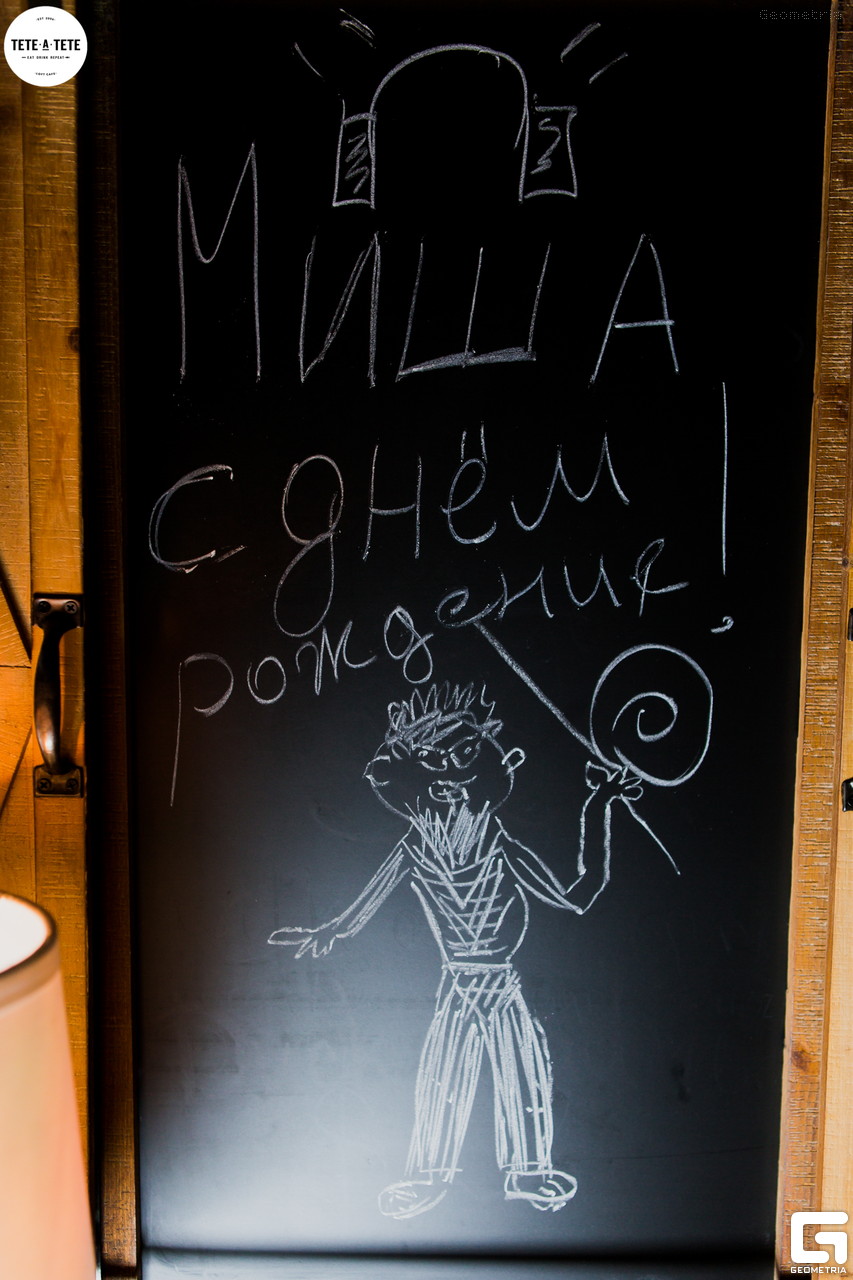 EST. 2009
TETE-A-TETE
EAT DRINK REPEAT
Geometria
Миша
с днём
рождения!
GEOMETRIA